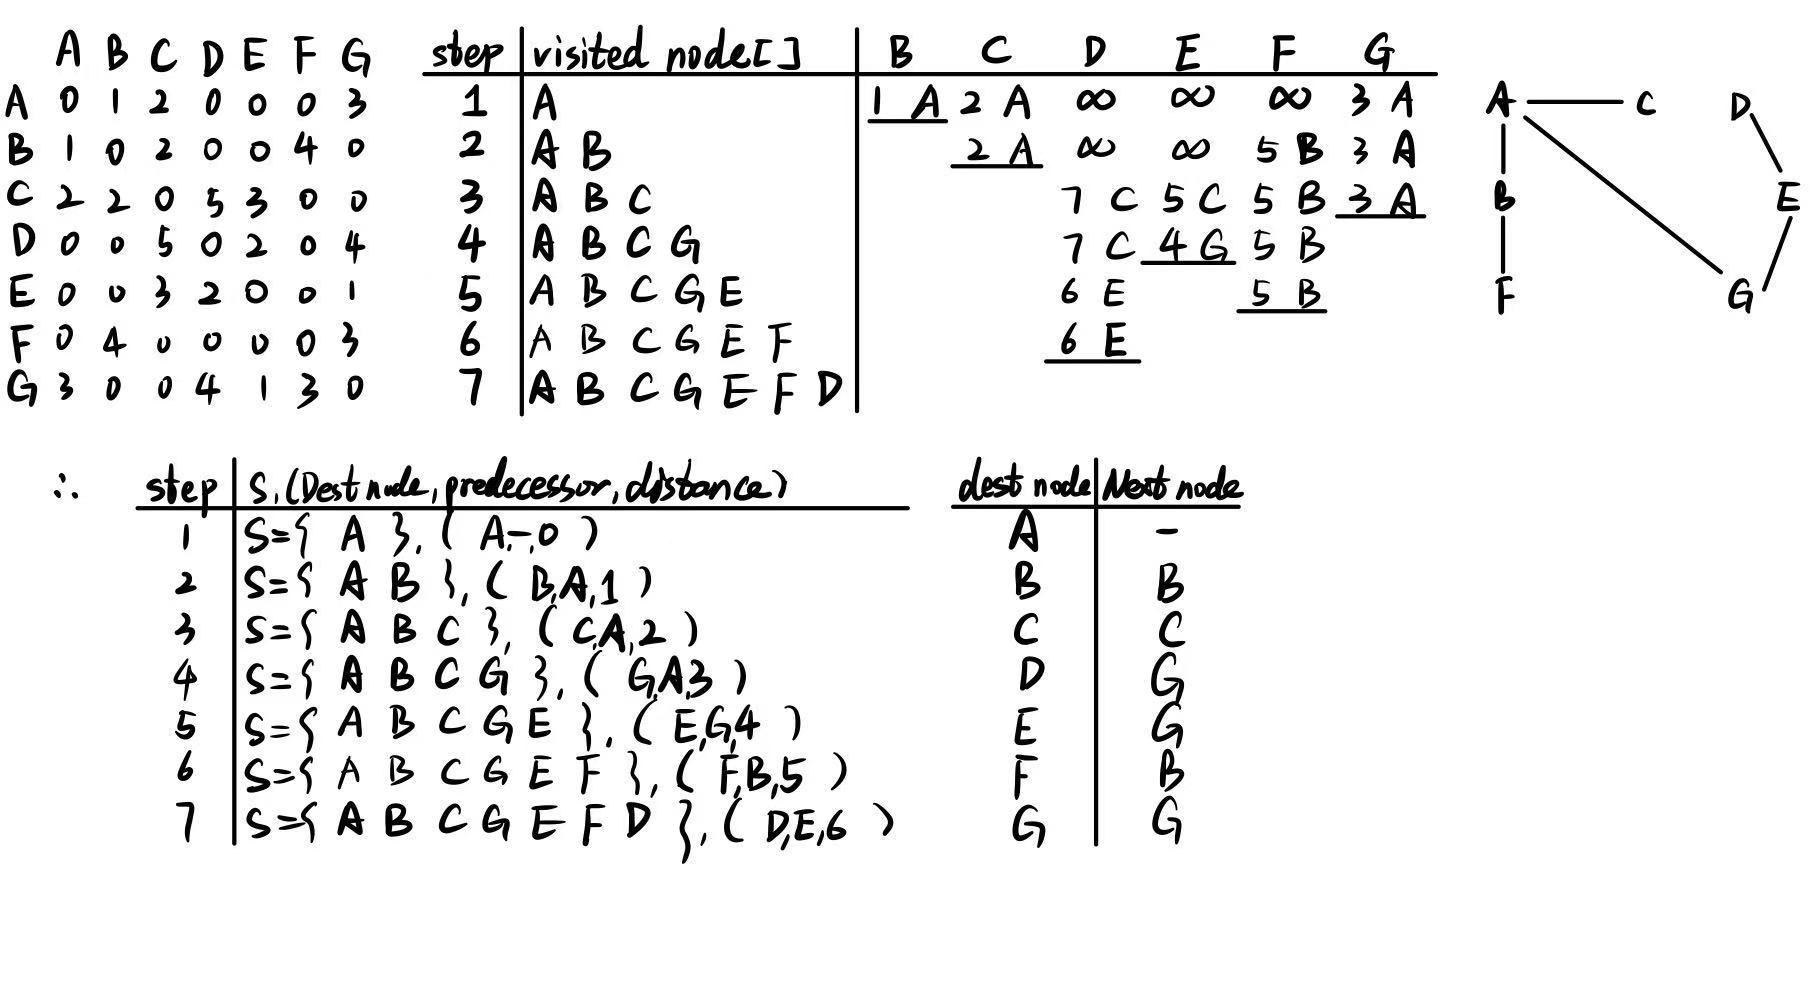 A B C D E F G
A 0 1 2 0 0 0 3
B 1 0 2 0 0 4 0
C 2 2 0 5 3 0 0
D 0 0 5 0 2 0 4
E 0 0 3 2 0 0 1
F 0 4 0 0 0 0 3
G 3 0 0 4 1 3 0
step visited node[] B C D E F G
1 A 1 A 2 A ∞ ∞ ∞ 3 A
2 A B 2 A ∞ ∞ 5 B 3 A
3 A B C 7 C 5 C 5 B 3 A
4 A B C G 7 C 4 G 5 B
5 A B C G E 6 E 5 B
6 A B C G E F 6 E
7 A B C G E F D
A C D
B E
F G
∴ step S,(Dest node, predecessor, distance)
1 S={ A }, ( A,-,0 )
2 S={ A B }, ( B,A,1 )
3 S={ A B C }, ( C,A,2 )
4 S={ A B C G }, ( G,A,3 )
5 S={ A B C G E }, ( E,G,4 )
6 S={ A B C G E F }, ( F,B,5 )
7 S={ A B C G E F D }, ( D,E,6 )
dest node Next node
A -
B B
C C
D G
E G
F B
G G